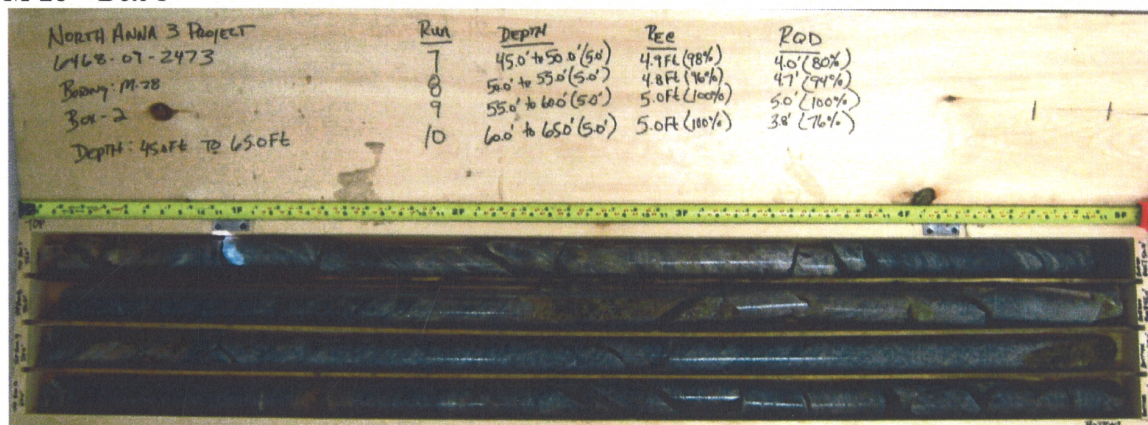 NORTH ANNA 3 PROJECT
6468-07-2473
Boring: M-28
Box-2
DEPTH: 45.0Ft TO 65.0Ft
RUN DEPTH REC RQD
7 45.0' to 50.0' (5.0') 4.9Ft (98%) 4.0' (80%)
8 50.0' to 55.0' (5.0') 4.8Ft (96%) 4.7' (94%)
9 55.0' to 60.0' (5.0') 5.0Ft (100%) 5.0' (100%)
10 60.0' to 65.0' (5.0') 5.0Ft (100%) 3.8' (76%)
1F 2F 3F 4F 5F
TOP